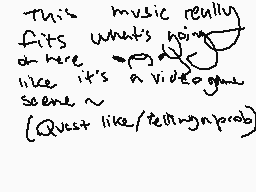 This music really
fits what's going
on here
like it's a video game
scene ~
(Quest like/telling a prob)